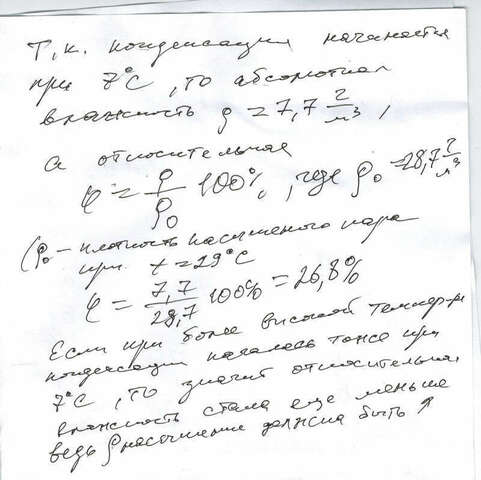 Т.к. конденсация начинается
при 7°С, то абсолютная
влажность ρ = 7,7 г/м³,
а относительная
φ = ρ/ρ₀ 100%, где ρ₀ = 28,7 г/м³
(ρ₀ – плотность насыщенного пара
при t = 29°С
φ = 7,7/28,7 100% = 26,8%
Если при более высокой темпер-ре
конденсация началась тоже при
7°С, то значит относительная
влажность стала еще меньше
ведь ρ насыщения должна быть ↑